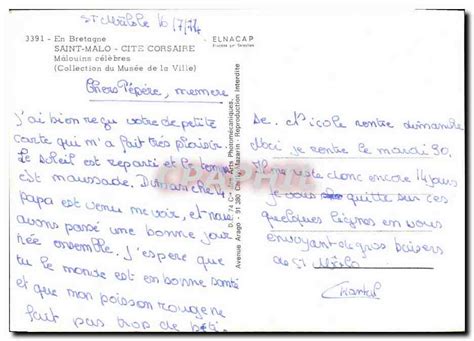 St Mâlo le 16/7/74
3391 - En Bretagne
SAINT-MALO - CITE CORSAIRE
Malouins célèbres
(Collection du Musée de la Ville)
ELNACAP
Chers Pépère, memere
J'ai bien reçu votre petite
carte qui m'a fait très plaisir.
Le soleil est reparti et le temps
est maussade. Dimanche 14
papa est venu me voir, et nous
avons passé une bonne jour
née ensemble. J'espere que
tu le monde est en bonne santé
et que mon poisson rouge ne
fait pas trop de
D.E.P.A. Cie des Arts Photomécaniques,
Avenue Arago - 91 380 Chilly-Mazarin - Reproduction Interdite
CPAPHIL.COM
se. Nicole rentre dimanche
Moi je rentre le mardi 30.
Il me reste donc encore 14 jours
je vous quitte sur ces
quelques lignes en vous
envoyant de gros baisers
de St Mâlo
Chantal